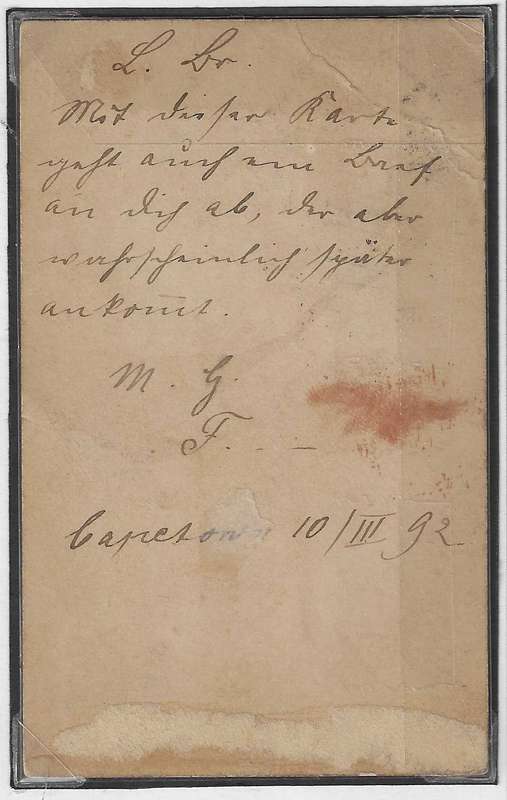 L. Br.
Mit dieser Karte
geht auch ein Brief
an dich ab, der aber
wahrscheinlich später
ankommt.
M. G.
F. . —
Capetown 10/III 92